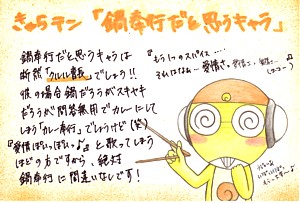 きゅらテン「鍋奉行だと思うキャラ」
鍋奉行だと思うキャラは
断然「クルル曹長」でしょう!!
彼の場合鍋だろうがスキヤキ
だろうが問答無用でカレーにして
しまう「カレー奉行」でしょうけど(笑)
『愛情ぽいっぽいっ♪』と歌ってしまう
ほどの方ですから、絶対
鍋奉行に間違いなしです!
『もう1つのスパイス‥‥
それはなぁー 愛情さ、